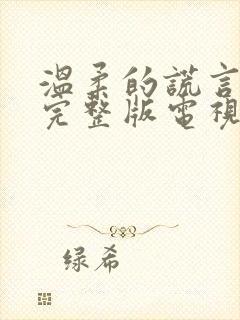 溫柔的謊言
完整版電視
绿希